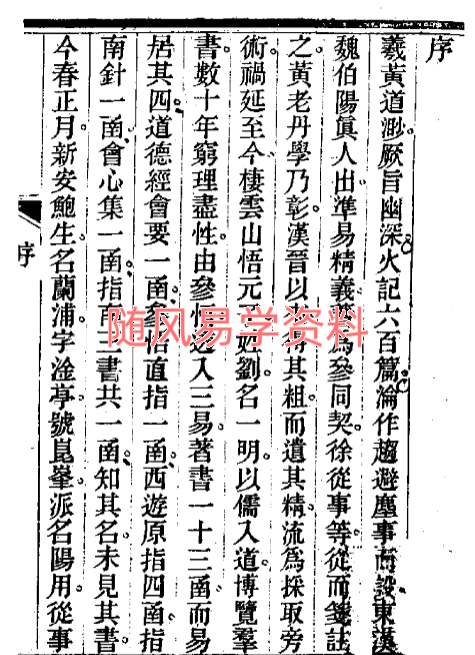 序
羲黃道渺。厥旨幽深。火記六百篇。淪作趨避塵事而設。東漢
魏伯陽眞人出。準易精義。爲參同契。徐從事等從而箋註
之。黃老丹學乃彰。漢晉以得其粗而遺其精。流爲採取旁
術。禍延至今。棲雲山悟元姓劉名一明。以儒入道。博覽羣
書。數十年窮理盡性。由參悟入三易。著書一十三函。而易
居其四。道德經會要一函。參悟直指一函。西遊原指四函。指
南針一函。會心集一函。指二書共一函。知其名。未見其書。
今春正月。新安鮑生。名蘭浦。字淦亭。號崑峯。派名陽用。從事
序
随风易学资料